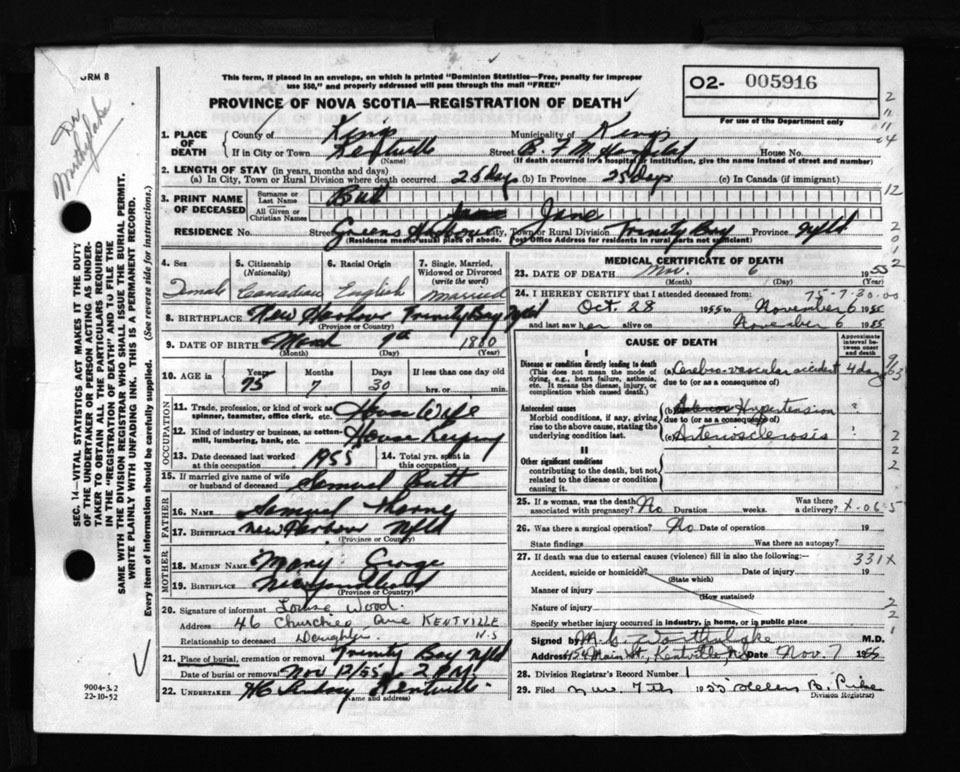 FORM 8
This form, if placed in an envelope, on which is printed "Dominion Statistics—Free, penalty for improper
use $50," and properly addressed will pass through the mail "FREE"
PROVINCE OF NOVA SCOTIA—REGISTRATION OF DEATH
02- 005916
For use of the Department only
Dr
1. PLACE OF DEATH
County of Kings
Municipality of Kings
If in City or Town Kentville
(Name)
Street B.F.M. Hospital House No.
(If death occurred in a hospital or institution, give the name instead of street and number)
2. LENGTH OF STAY (in years, months and days)
(a) In City, Town or Rural Division where death occurred 25 days (b) In Province 25 days (c) In Canada (if immigrant)
3. PRINT NAME OF DECEASED
Surname or Last Name Butt
All Given or Christian Names Jane
RESIDENCE No. Street Greens Harbour City, Town or Rural Division Trinity Bay Province Nfld
(Residence means usual place of abode. Post Office Address for residents in rural parts not sufficient)
4. Sex Female
5. Citizenship (Nationality) Canadian
6. Racial Origin English
7. Single, Married, Widowed or Divorced (write the word) Married
8. BIRTHPLACE New Harbour Trinity Bay Nfld
(Province or Country)
9. DATE OF BIRTH March 7th 1880
(Month) (Day) (Year)
10. AGE in Years 75 Months 7 Days 30 If less than one day old hrs. or min.
OCCUPATION
11. Trade, profession, or kind of work as spinner, teamster, office clerk, etc. House Wife
12. Kind of industry or business, as cotton-mill, lumbering, bank, etc. House Keeping
13. Date deceased last worked at this occupation 1955
14. Total yrs. spent in this occupation
15. If married give name of wife or husband of deceased Samuel Butt
FATHER
16. Name Samuel Thorne
17. Birthplace New Harbour Nfld
(Province or Country)
MOTHER
18. MAIDEN NAME Mary George
19. BIRTHPLACE Newfoundland
(Province or Country)
20. Signature of informant Louise Wood.
Address 46 Ave KENTVILLE
N.S
Relationship to deceased Daughter
21. Place of burial, cremation or removal Trinity Bay Nfld
Date of burial or removal Nov 12/55 2 PM
22. UNDERTAKER Kentville
Name and address
MEDICAL CERTIFICATE OF DEATH
23. DATE OF DEATH Nov. 6 1955
(Month) (Day) (Year)
75-7-30-00
24. I HEREBY CERTIFY that I attended deceased from:
Oct. 28 1955 to November 6 1955
and last saw her alive on November 6 1955
CAUSE OF DEATH
Approximate interval between onset and death
I
Disease or condition directly leading to death
(This does not mean the mode of dying, e.g., heart failure, asthenia, etc. It means the disease, injury, or complication which caused death.)
(a) Cerebro-vascular accident 4 days
due to (or as a consequence of)
Antecedent causes
Morbid conditions, if any, giving rise to the above cause, stating the underlying condition last.
(b) Hypertension
due to (or as a consequence of)
(c) Arteriosclerosis
II
Other significant conditions
contributing to the death, but not related to the disease or condition causing it.
25. If a woman, was the death associated with pregnancy? No Duration weeks. Was there a delivery? X-06-5
26. Was there a surgical operation? No Date of operation 19
State findings Was there an autopsy?
27. If death was due to external causes (violence) fill in also the following:— 331X
Accident, suicide or homicide? Date of injury 19
(State which)
Manner of injury
(How sustained)
Nature of injury
Specify whether injury occurred in industry, in home, or in public place
Signed by M.D.
Address 454 Main St, Kentville, N.S. Date Nov. 7 1955
28. Division Registrar's Record Number 1
29. Filed Nov. 7th 1955 Helen B.
(Division Registrar)
SEC. 14—VITAL STATISTICS ACT MAKES IT THE DUTY
OF THE UNDERTAKER OR PERSON ACTING AS UNDER-
TAKER TO OBTAIN ALL THE PARTICULARS REQUIRED
IN THE "REGISTRATION OF DEATH" AND TO FILE THE
SAME WITH THE DIVISION REGISTRAR WHO SHALL ISSUE THE BURIAL PERMIT.
WRITE PLAINLY WITH UNFADING INK. THIS IS A PERMANENT RECORD.
Every item of information should be carefully supplied. (See reverse side for instructions.)
9004-3.2
22-10-52